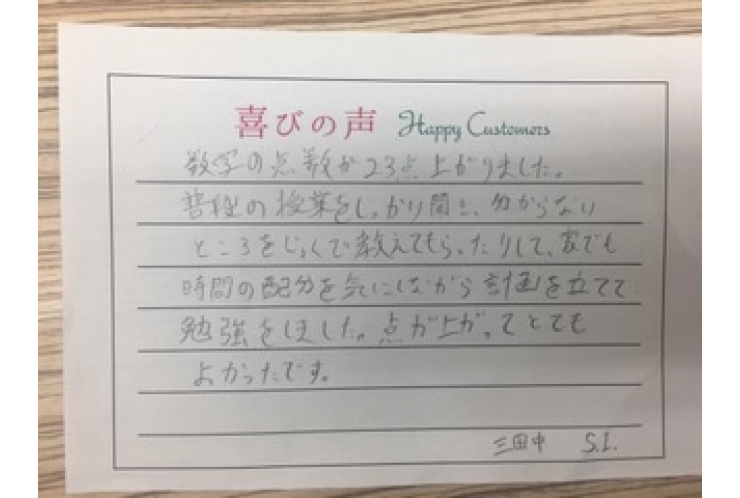 喜びの声 Happy Customers
数学の点数が23点上がりました。
普段の授業をしっかり聞き、分からない
ところをじゅくで教えてもらったりして、家でも
時間の配分を気にしながら計画を立てて
勉強をしました。点が上がってとても
よかったです。
三田中 S.I.